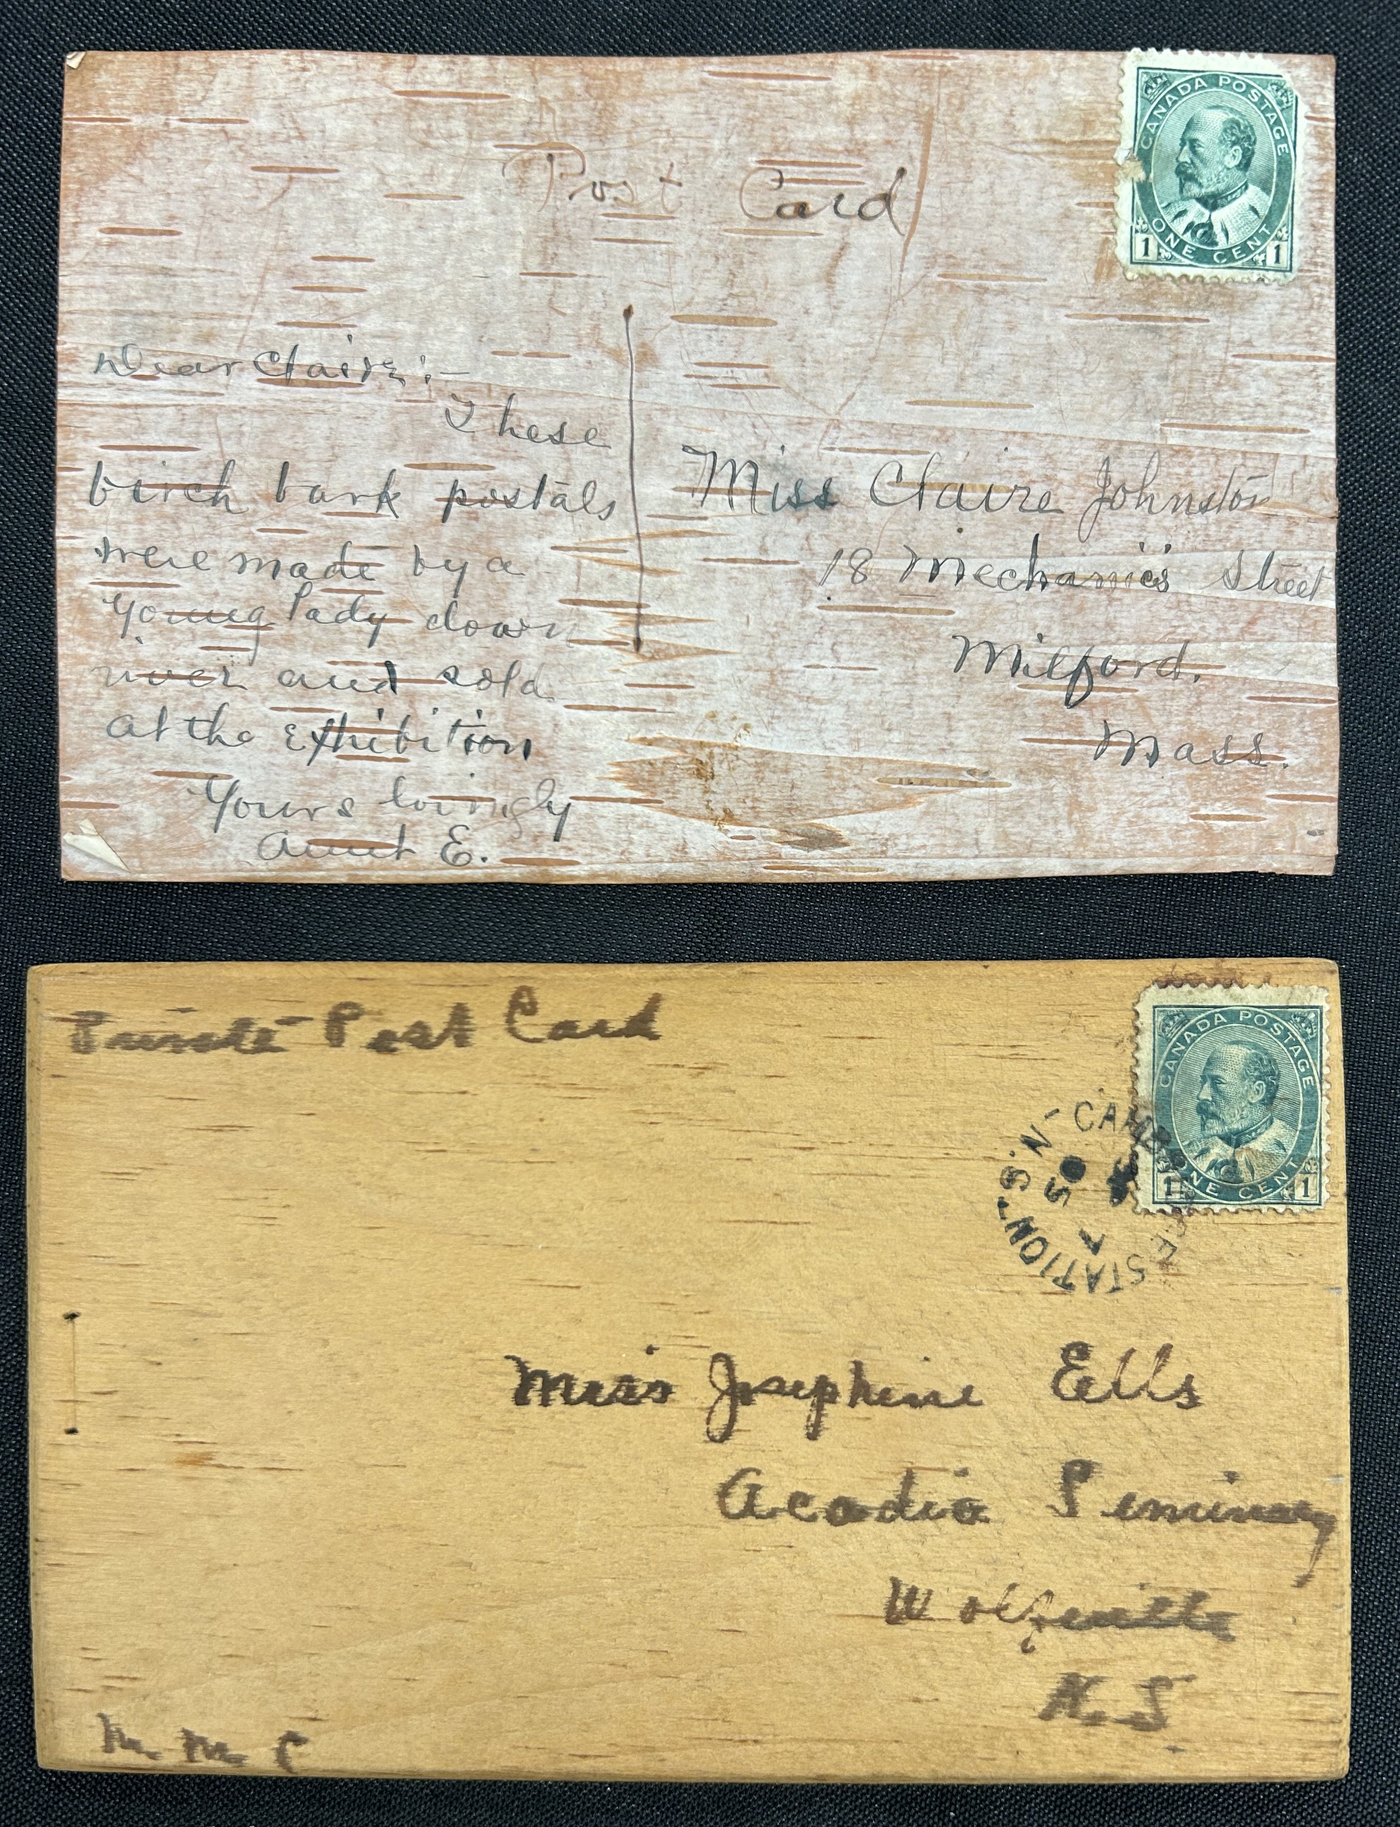 Post Card
CANADA POSTAGE
ONE CENT
1 1
Dear Claire:-
These
birch bark postals
were made by a
young lady down
river and sold
at the exhibition
Yours lovingly
Aunt E.
Miss Claire Johnston
18 Mechanic's Street
Milford.
Mass.
Private Post Card
CANADA POSTAGE
ONE CENT
1 1
STATION N.S.
Miss Josephine Eells
Acadia Seminary
Wolfville
N. S
M. M. C